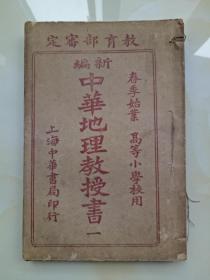 教育部審定
春季始業　高等小學校用
新編
中華地理教授書　一
上海中華書局印行